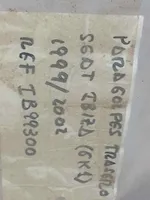 PARAGOLPES TRASERO
SEAT IBIZA (6K1)
1999/2002
REF IB99300